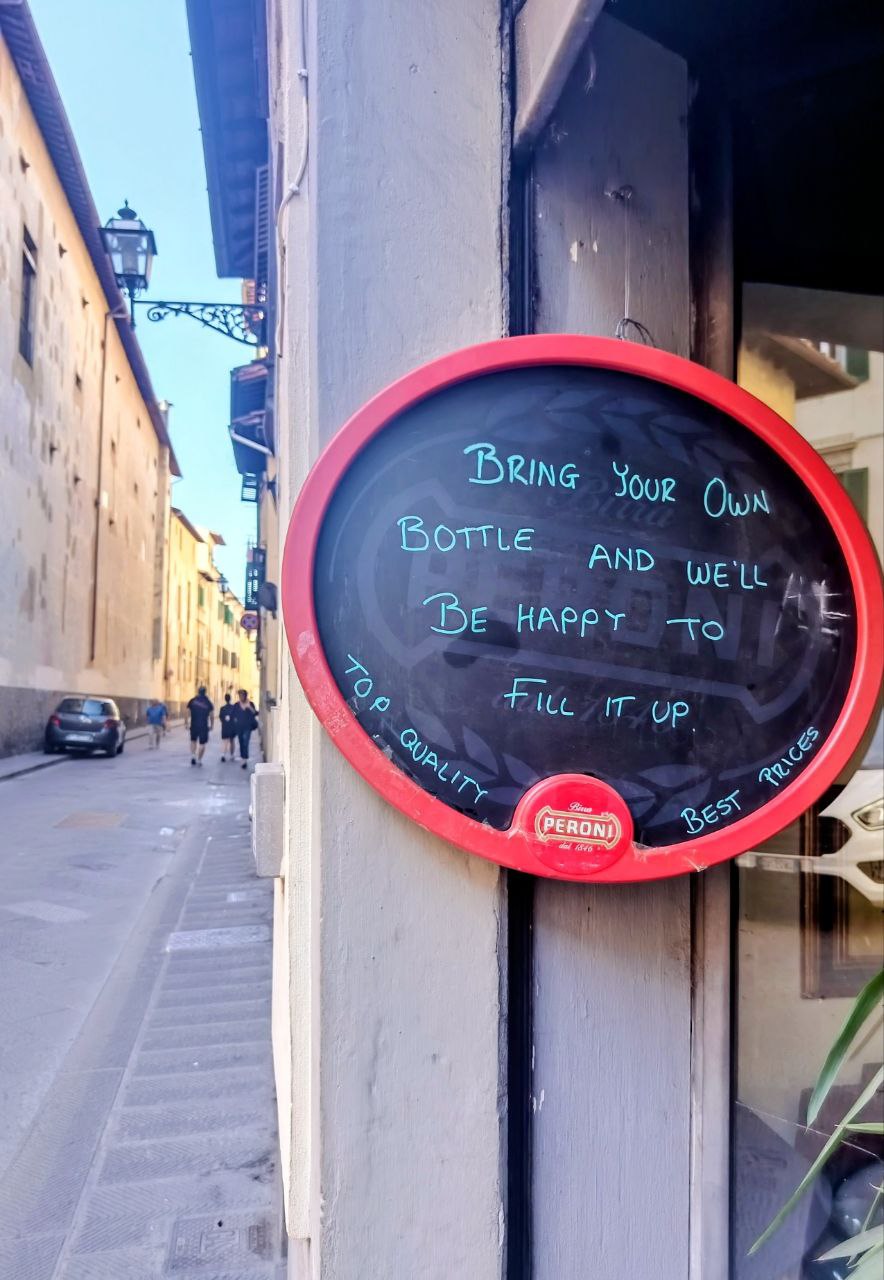 Bring Your Own
Bottle and we'll
Be happy to
Fill it up.
Top Quality
Best Prices
Birra
PERONI
dal 1846